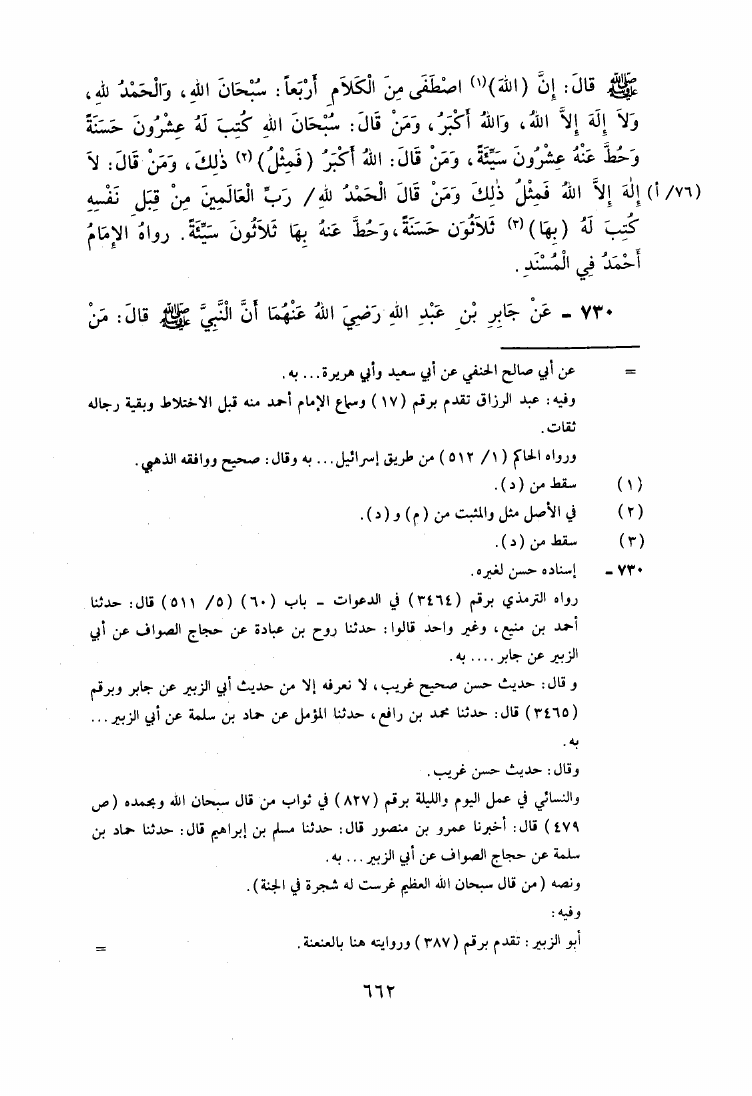 ﷺ قَالَ: إِنَّ (اللهَ)(١) اصْطَفَى مِنَ الْكَلَامِ أَرْبَعاً: سُبْحَانَ اللهِ، وَالْحَمْدُ للهِ،
وَلاَ إِلَهَ إِلاَّ اللهُ، وَاللهُ أَكْبَرُ، وَمَنْ قَالَ: سُبْحَانَ اللهِ كُتِبَ لَهُ عِشْرُونَ حَسَنَةً
وَحُطَّ عَنْهُ عِشْرُونَ سَيِّئَةً، وَمَنْ قَالَ: اللهُ أَكْبَرُ (فَمِثْلُ)(٢) ذٰلِكَ، وَمَنْ قَالَ: لاَ
(٧٦/ أ) إِلٰهَ إِلاَّ اللهُ فَمِثْلُ ذٰلِكَ وَمَنْ قَالَ الْحَمْدُ للهِ/ رَبِّ الْعَالَمِينَ مِنْ قِبَلِ نَفْسِهِ
كُتِبَ لَهُ (بِهَا)(٣) ثَلَاثُون حَسَنَةً، وَحُطَّ عَنهُ بِهَا ثَلَاثُونَ سَيِّئَةً. رواهُ الإِمَامُ
أَحْمَدُ فِي الْمُسْنَدِ.
٧٣٠ - عَنْ جَابِرِ بْنِ عَبْدِ اللهِ رَضِيَ اللهُ عَنْهُمَا أَنَّ النَّبِيَّ ﷺ قَالَ: مَنْ
= عن أبي صالح الحنفي عن أبي سعيد وأبي هريرة... به.
وفيه: عبد الرزاق تقدم برقم (١٧) وسماع الإمام أحمد منه قبل الاختلاط وبقية رجاله
ثقات.
ورواه الحاكم (١/ ٥١٢) من طريق إسرائيل... به وقال: صحيح ووافقه الذهبي.
(١) سقط من (د).
(٢) في الأصل مثل والمثبت من (م) و (د).
(٣) سقط من (د).
٧٣٠ - إسناده حسن لغيره.
رواه الترمذي برقم (٣٤٦٤) في الدعوات - باب (٦٠) (٥/ ٥١١) قال: حدثنا
أحمد بن منيع، وغير واحد قالوا: حدثنا روح بن عبادة عن حجاج الصواف عن أبي
الزبير عن جابر.... به.
و قال: حديث حسن صحيح غريب، لا نعرفه إلا من حديث أبي الزبير عن جابر وبرقم
(٣٤٦٥) قال: حدثنا محمد بن رافع، حدثنا المؤمل عن حماد بن سلمة عن أبي الزبير...
به.
وقال: حديث حسن غريب.
والنسائي في عمل اليوم والليلة برقم (٨٢٧) في ثواب من قال سبحان الله وبحمده (ص
٤٧٩) قال: أخبرنا عمرو بن منصور قال: حدثنا مسلم بن إبراهيم قال: حدثنا حماد بن
سلمة عن حجاج الصواف عن أبي الزبير... به.
ونصه (من قال سبحان الله العظيم غرست له شجرة في الجنة).
وفيه:
أبو الزبير: تقدم برقم (٣٨٧) وروايته هنا بالعنعنة. =
٦٦٢